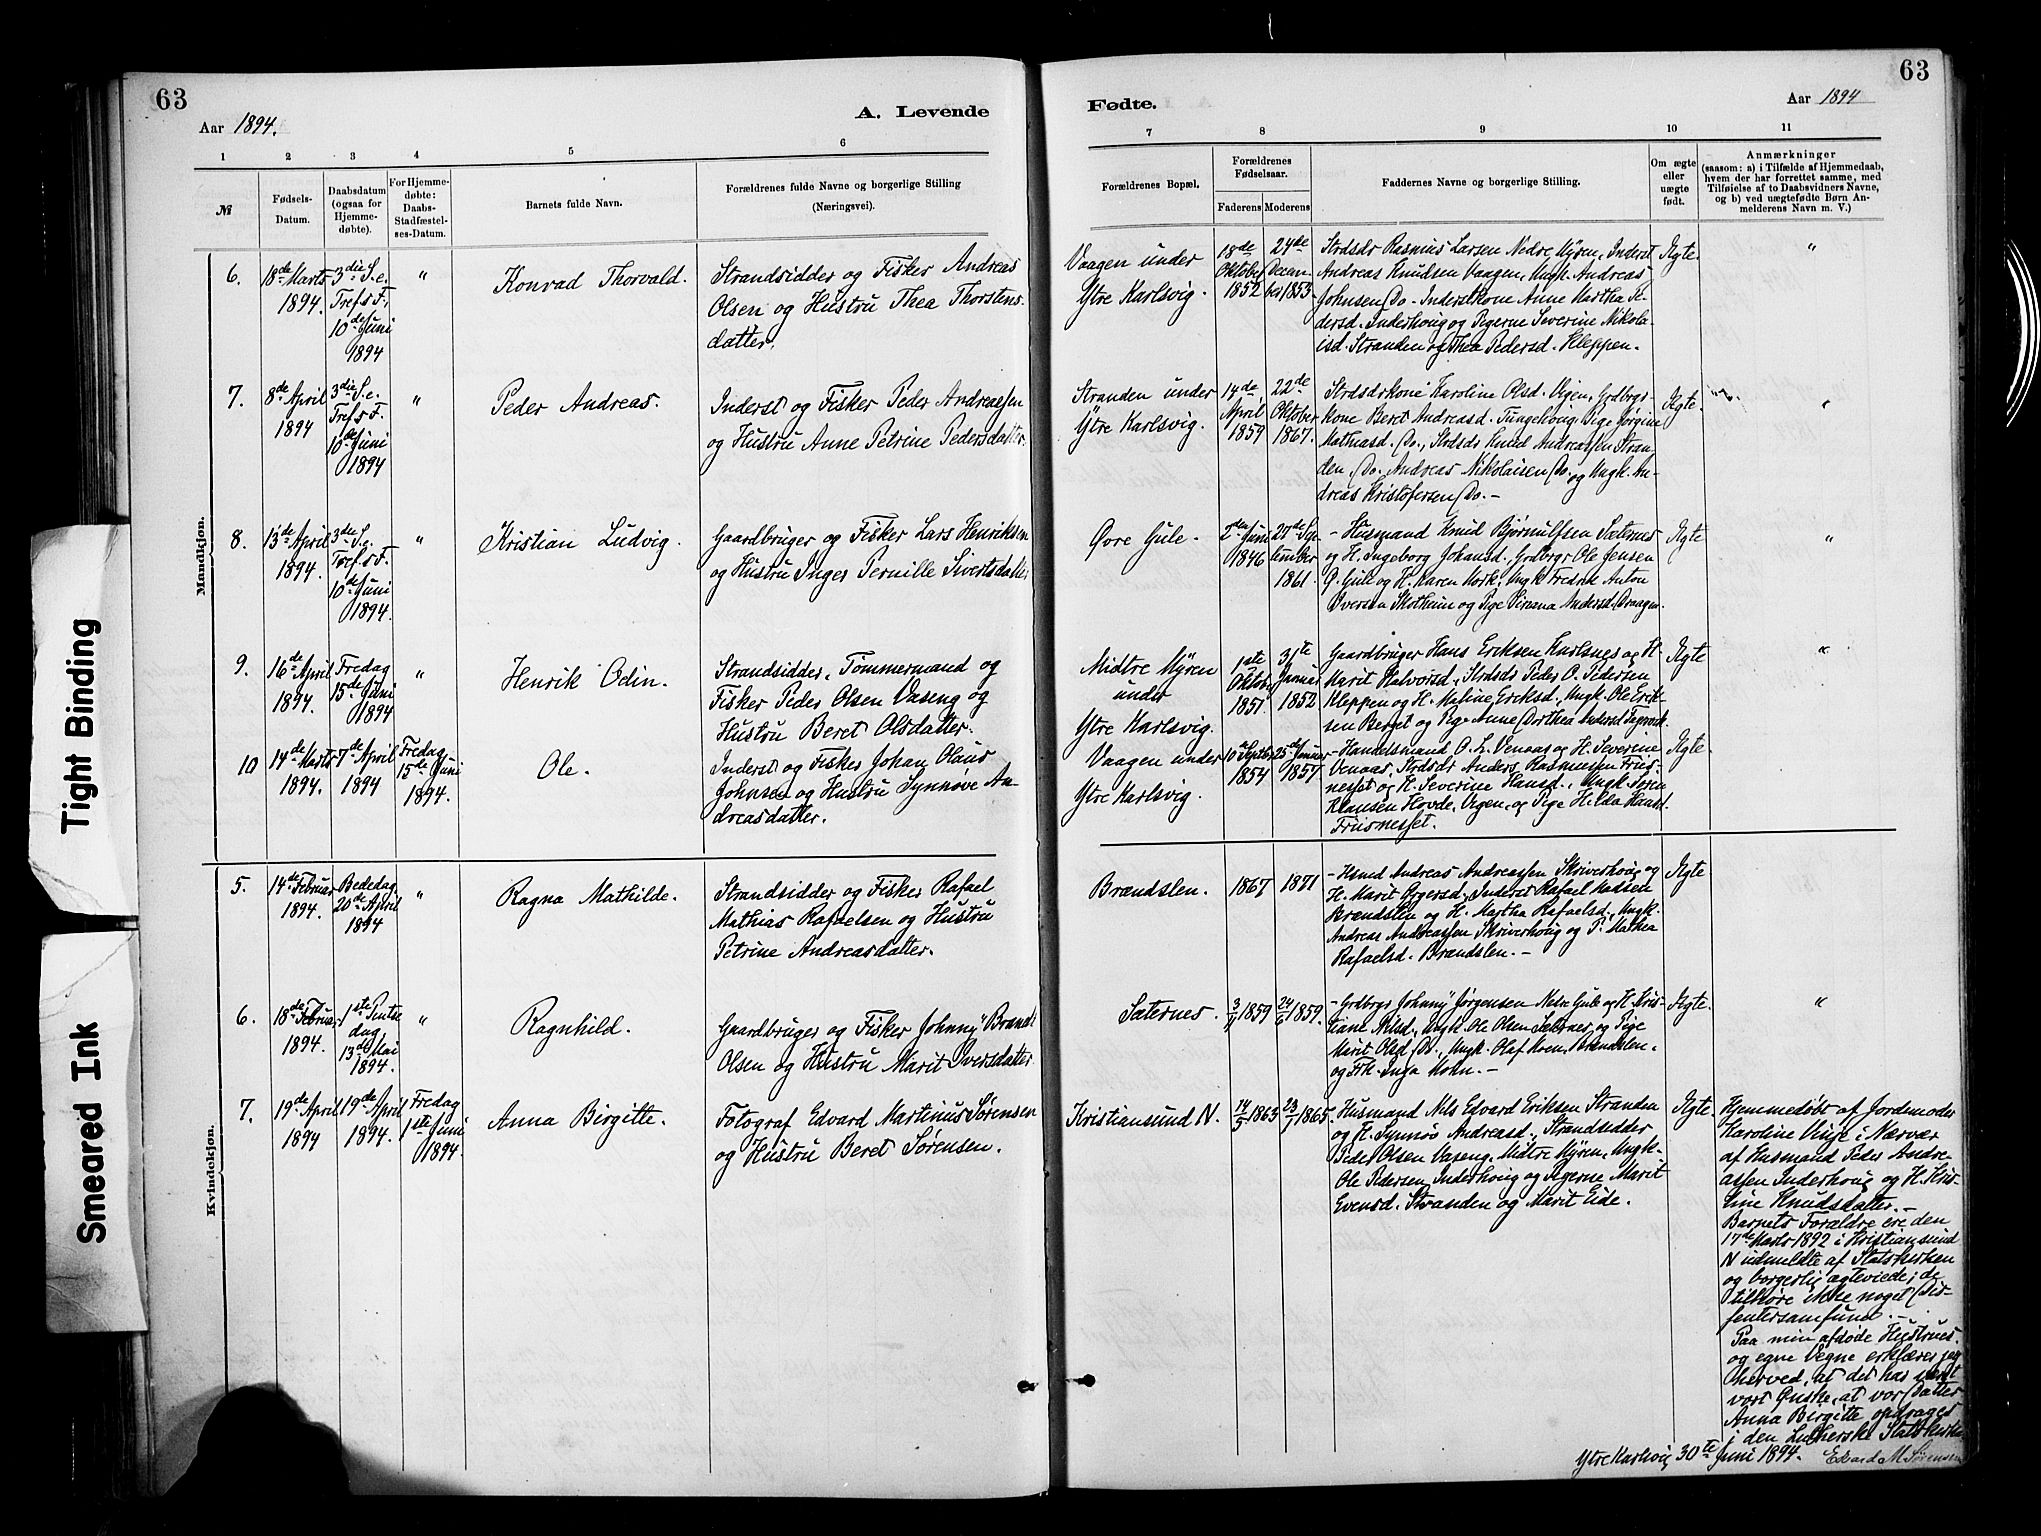 63
Aar 1894.
A. Levende
1 2 3 4 5 6
№
Fødsels-
Datum.
Daabsdatum
(ogsaa for
Hjemme-
døbte).
For Hjemme-
døbte:
Daabs-
Stadfæstel-
ses-Datum.
Barnets fulde Navn.
Forældrenes fulde Navne og borgerlige Stilling
(Næringsvei).
Mandkjøn.
6.
18de Marts
1894.
3die S. e.
Tref. s F.
10de Juni
1894
"
Konrad Thorvald.
Strandsidder og Fisker Andreas
Olsen og Hustru Thea Thorstens-
datter.
7.
8de April
1894
3die S. e.
Tref. s F.
10de Juni
1894
"
Peder Andreas.
Inderst og Fisker Peder Andreassen
og Hustru Anne Petrine Pedersdatter.
8.
13de April
1894.
3die S. e.
Tref. s F.
10de Juni
1894.
"
Kristian Ludvig.
Gaardbruger og Fisker Lars Henriksen
og Hustru Inger Pernille Sivertsdatter
9.
16de April
1894.
Fredag
15de Juni
1894
"
Henrik Odin.
Strandsidder, Tømmermand og
Fisker Peder Olsen Vaseng og
Hustru Beret Olsdatter.
10
14de Marts
1894.
7de April
1894
Fredag
15de Juni
1894.
Ole.
Inderst og Fisker Johan Olaus
Johnsen og Hustru Synnøve An-
dreasdatter.
Kvindekjøn.
5.
14de Februar
1894.
Bededag
20de April
1894
"
Ragna Mathilde.
Strandsidder og Fisker Rafael
Mathias Rafaelsen og Hustru
Petrine Andreasdatter.
6.
18de Februar
1894.
1ste Pintse
dag,
13de Mai
1894.
"
Ragnhild.
Gaardbruger og Fisker Johnny Brandt
Olsen og Hustru Marit Iversdatter
7.
19de April
1894
19de April
1894.
Fredag
1ste Juni
1894.
Anna Birgitte.
Fotograf Edvard Martinus Sørensen
og Hustru Beret Sørensen.
Tight Binding
Smeared Ink
63
Fødte.
Aar 1894
7 8 9 10 11
Forældrenes Bopæl.
Forældrenes
Fødselsaar.
Faderens Moderens
Faddernes Navne og borgerlige Stilling.
Om ægte
eller
uægte
født.
Anmærkninger
(saasom: a) i Tilfælde af Hjemmedaab,
hvem der har forrettet samme, med
Tilføielse af to Daabsvidners Navne,
og b) ved uægtefødte Børn An-
melderens Navn m. V.)
Vaagen under
Ytre Karlsvig.
18de
Oktober
1852
24de
Decem-
ber 1853
Strdsdr Rasmus Larsen Nedre Myren, Inderst
Andreas Knudsen Vaagen, Ungk. Andreas
Johnsen Do. Inderstkone Anne Martha Pe-
dersd. Inderhoug og Pigerne Severine Nikola-
isd. Stranden og Thea Pedersd. Kleppen.
Ægte.
"
Stranden under
Ytre Karlsvig.
14de
April
1859
22de
Oktober
1867.
Strdsdrkone Karoline Olsd. Vigen, Grdbrgr-
kone Beret Andreasd. Tungehoug, Pige Jørgine
Mathiasd. Do., Strdsdr Knud Andreassen Stran-
den, Do. Andreas Nikolaisen Do. og Ungk. An-
dreas Kristofersen Do. –
Ægte.
"
Øvre Gule.
2den Juni
1846
27de Sep-
tember
1861.
– Husmand Knud Bjørnulfsen Sæternes
og H. Ingeborg Johansd. Grdbrgr Ole Jensen
G. Gule og H. Karen Mork, Ungk Fredrik Anton
Iversen Skotheim og Pige Andersd. Draagen.
Ægte
"
Midtre Myren
under
Ytre Karlsvig.
1ste
Oktober
1851
31te
Januar
1852
Gaardbruger Hans Eriksen Karlsnes og H.
Marit Halvorsd., Strdsdr Peder O. Pedersen
Kleppen og H. Maline Eriksd., Ungk. Ole Erik-
sen Berget og Pige Anne Dorthea Andersd
Ægte
"
Vaagen under
Ytre Karlsvig.
10 Septbr
1854
25de Januar
1857
– Handelsmand O. L. Venaas og H. Severine
Venaas, Strdsdr Anders Rasmussen Friis-
nesset og H. Severine Hansd., Ungk. Søren
Klausen Hovde, Vegen, og Pige Hilda Hansd.
Friisnesset.
Ægte
Brændslen.
1867
1871
– Hsmd Andreas Andreassen Skriverhoug og
H. Marit Pedersd., Inderst Rafael
Brændslen og H. Martha Rafaelsd., Ungk.
Andreas Andreassen Skriverhoug og P. Mathea
Rafaelsd. Brændslen. –
Ægte
Sæternes.
3/9 1859
24/6 1859.
– Grdbrgr Johnny Jørgensen Nedre Gule og H. Kris-
tiane Nilsd., Ungk. Ole Olsen Sæternes, og Pige
Marit Olsd. Do., Ungk. Olaf Koen, Brændslen.
og Frk. Inga Kohn. –
Ægte.
"
Kristiansund N.
14/5 1863
23/7 1865.
Husmand Nils Edvard Eriksen Stranden
og H. Synnøv Andreasd., Strandsidder
Peder Olsen Vaseng, Midtre Myren, Ungk.
Ole Pedersen Inderhoug og Pigerne Marit
Evensd. Stranden og Marit Eide.
Ægte.
Hjemmedøbt af Jordemoder
Karoline Vinje i Nærvær
af Husmand Peder Andre-
assen Inderhoug og H. Kris-
tine Knudsdatter. –
Barnets Forældre ere den
17de Marts 1892 i Kristiansund
N udmeldte af Statskirken
og borgerlig ægteviede; de
tilhøre ikke noget Dis-
sentersamfund. –
Paa min afdøde Hustrues
og egne Vegne erklærer jeg
herved, at det har været
vort Ønske, at vor Datter
Anna Birgitte opdrages
i den Lutherske Statskirke
Ytre Karlsvig 30te Juni 1894. Edvard M Sørensen